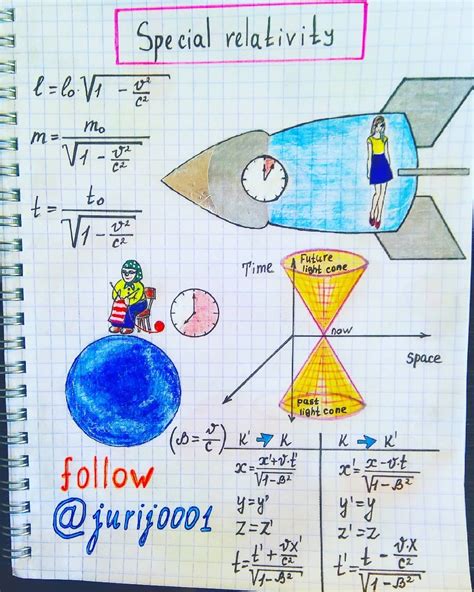 Special relativity
l = l₀·√(1 - v²/c²)
m = m₀/√(1 - v²/c²)
t = t₀/√(1 - v²/c²)
Time
Future
light cone
now
Space
past
light cone
(B = v/c)
K' → K
K → K'
x = (x'+v·t')/√(1-B²)
x' = (x-v·t)/√(1-B²)
y = y'
y' = y
z = z'
z' = z
t = (t' + vx'/c²)/√(1-B²)
t' = (t - vx/c²)/√(1-B²)
follow
@jurij0001